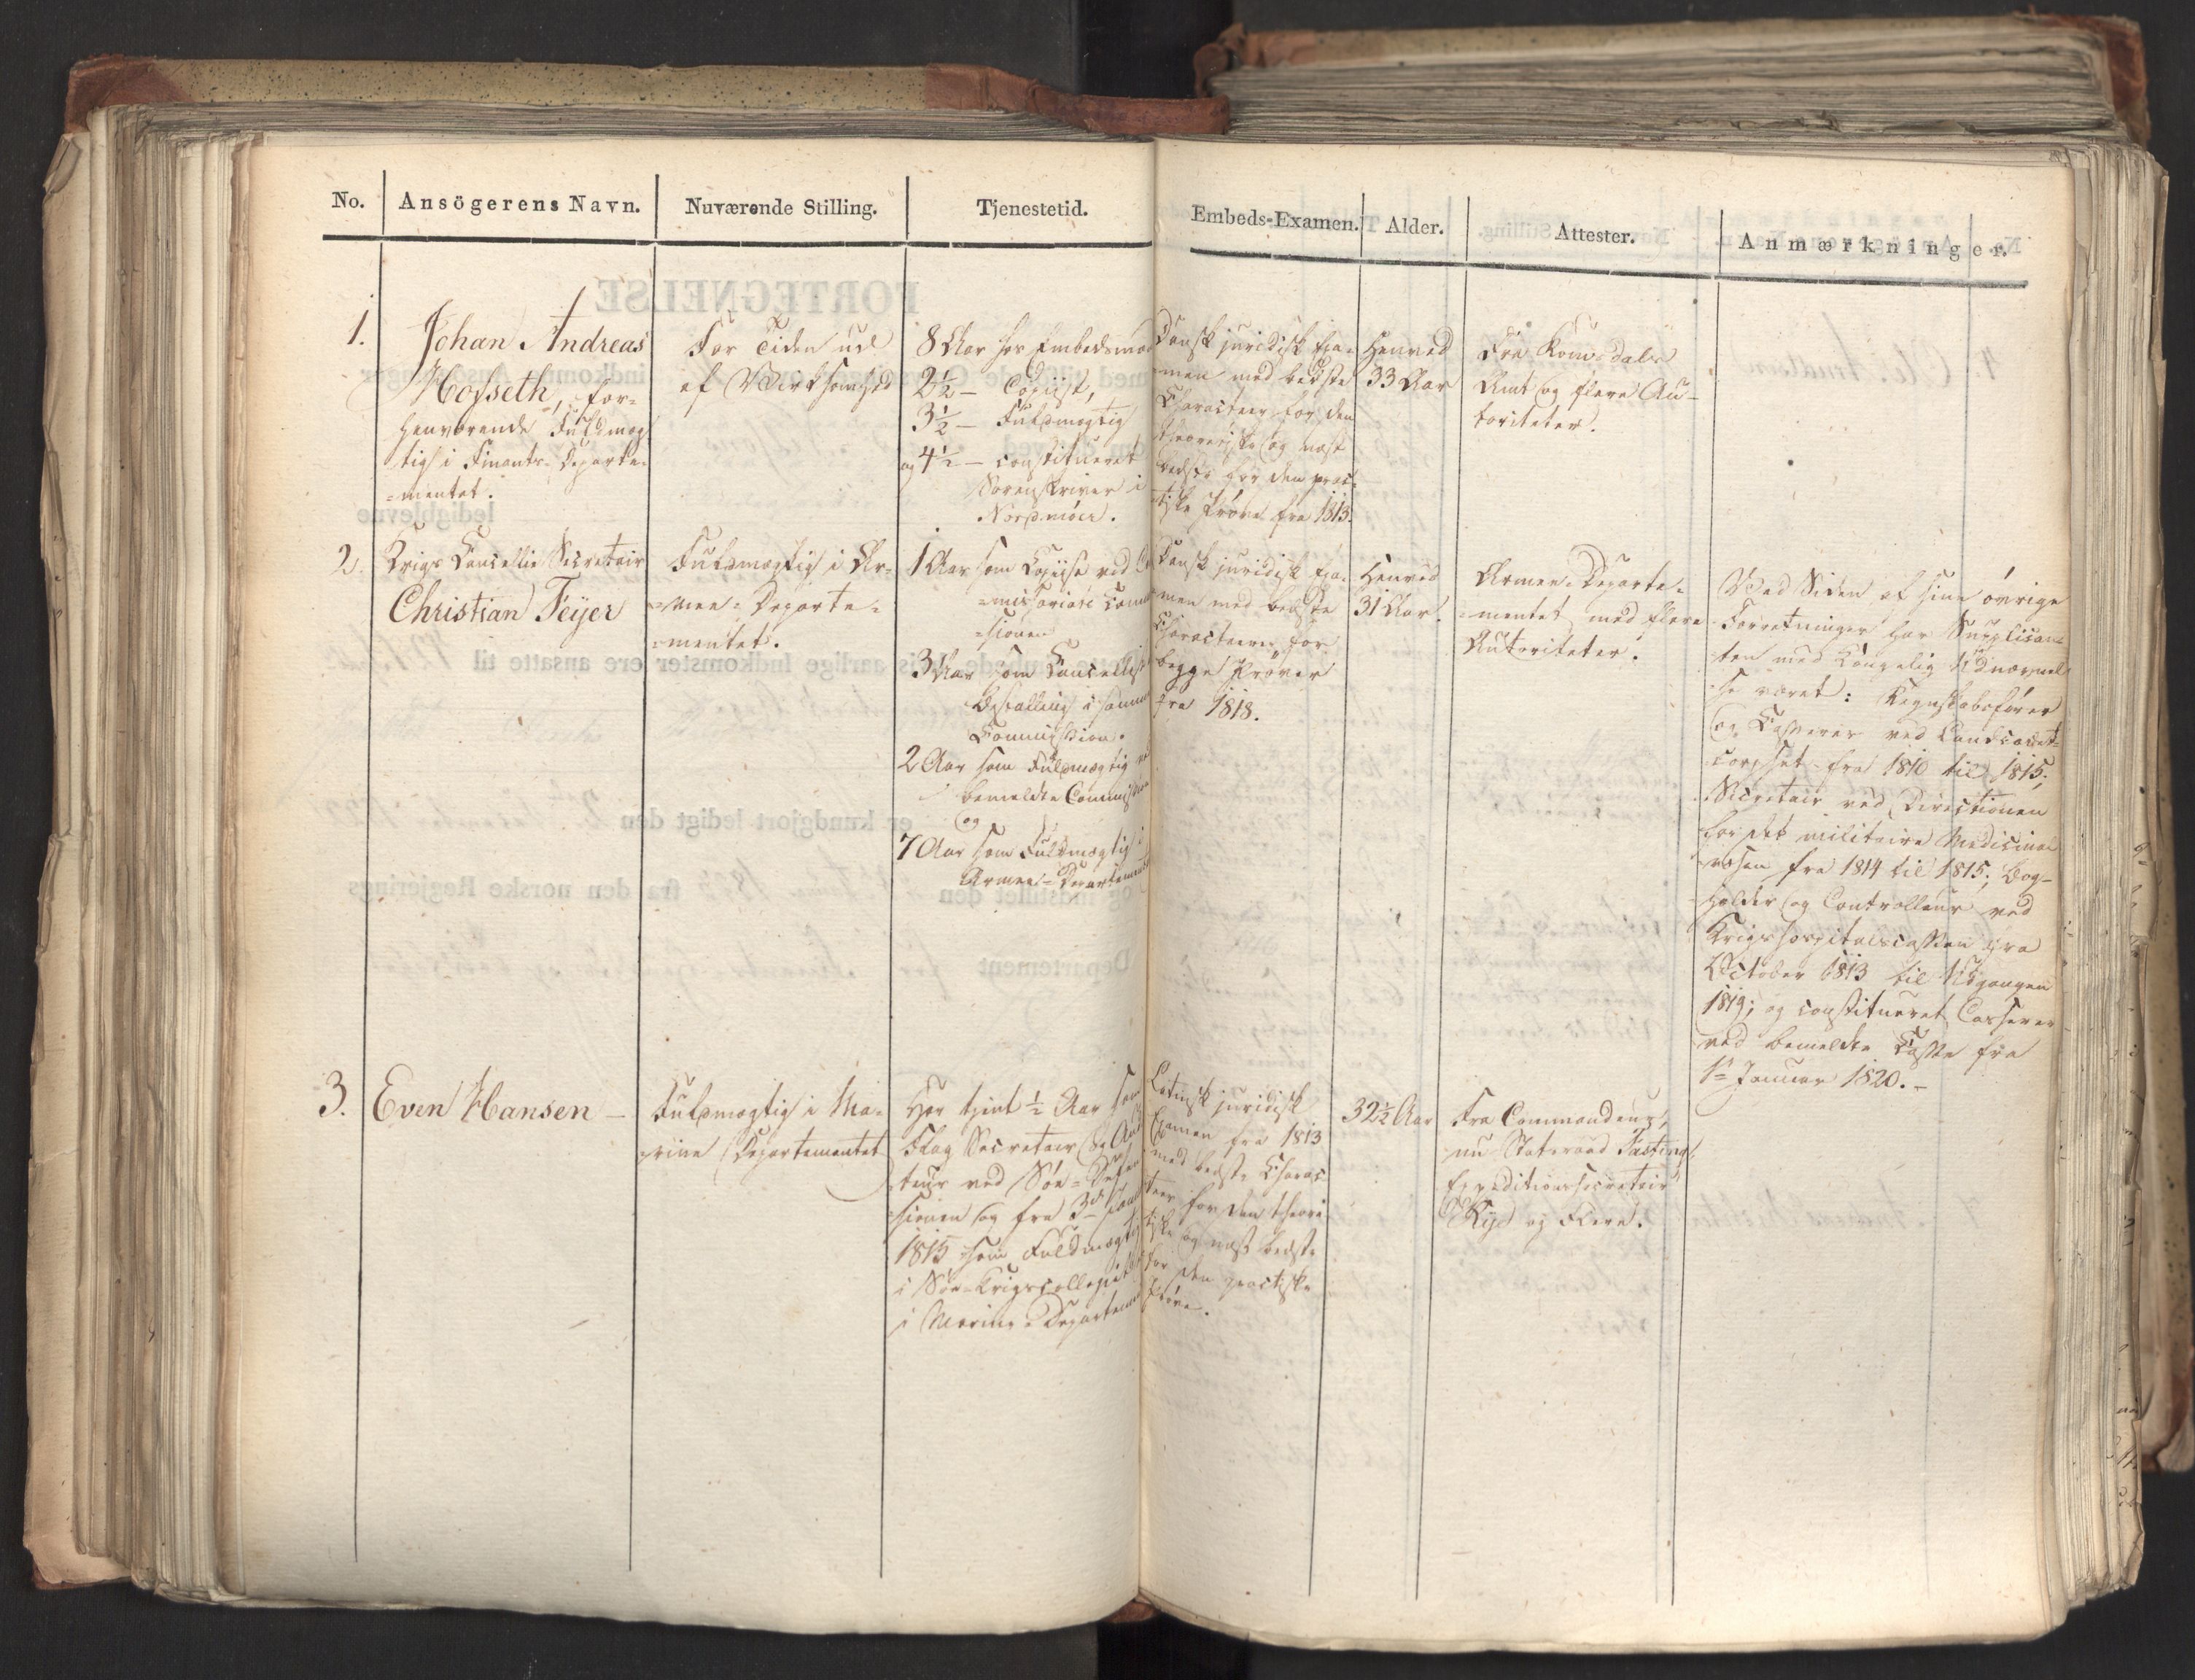 No. Ansögerens Navn. Nuværende Stilling. Tjenestetid. Embeds-Examen. Alder. Attester. Anmærkninger.
1.
Johan Andreas
Hofseth, for-
henværende Fuldmæg-
tig i Finants-Departe-
=mentet.
For Tiden ud
af Virksomhed
8 Aar hos Embedsmæ
2½ — Copiist,
3½ — Fuldmægtig
og 4½ — constitueret
Sorenskriver i
Nordmöer.
Dansk juridisk Exa-
men med bedste
Characteer for den
theoretiske og næst
bedste for den prac-
tiske Pröve fra 1813.
Henved
33 Aar
Fra Romsdals
Amt og flere Au-
toriteter.
2.
Krigs Cancellie Secretair
Christian Feijer
Fuldmægtig i Ar-
=mee-Departe-
=mentet.
1 Aar som Copiist ved
=missariats Com
=sionen
3 Aar som Cancellist
Bestalling i samme
Commission.
2 Aar som Fuldmægtig ve
bemeldte Commission
og
7 Aar som Fuldmægtig i
Armee-Departement
Dansk juridisk Exa-
men med bedste
Characteer for
begge Pröver
fra 1818.
Henved
31 Aar.
Armee-Departe-
=mentet med flere
Autoriteter.
Ved Siden af sine övrige
Forretninger har Supplican-
ten med Kongelig Udnævnel-
se været: Regnskabsförer
og Casserer ved Landcadet-
corpset fra 1810 til 1815;
Secretair ved Directionen
for det militaire Medicinal
væsen fra 1814 til 1815; Bog-
holder og Controlleur ved
Krigshospitalscassen fra
October 1813 til Udgangen
1819; og constitueret Casserer
ved bemeldte Casse fra
1ste Januar 1820. —
3.
Even Hansen —
Fuldmægtig i Ma-
=rine Departementet
Har tjent ½ Aar som
Flag Secretair og Audi
teur ved Söe-Defen
sionen og fra 3die
1815 som Fuldmægtig
i Söe-Krigscollegiet
i Marine-Departeme
Latinsk juridisk
Examen fra 1813
med bedste Charac
teer for den theore
tiske og næst bedste
for den practiske
Pröve.
32½ Aar
Fra Commandeur,
nu Statsraad Fasting,
Expeditionssecretair
Rye og Flere.